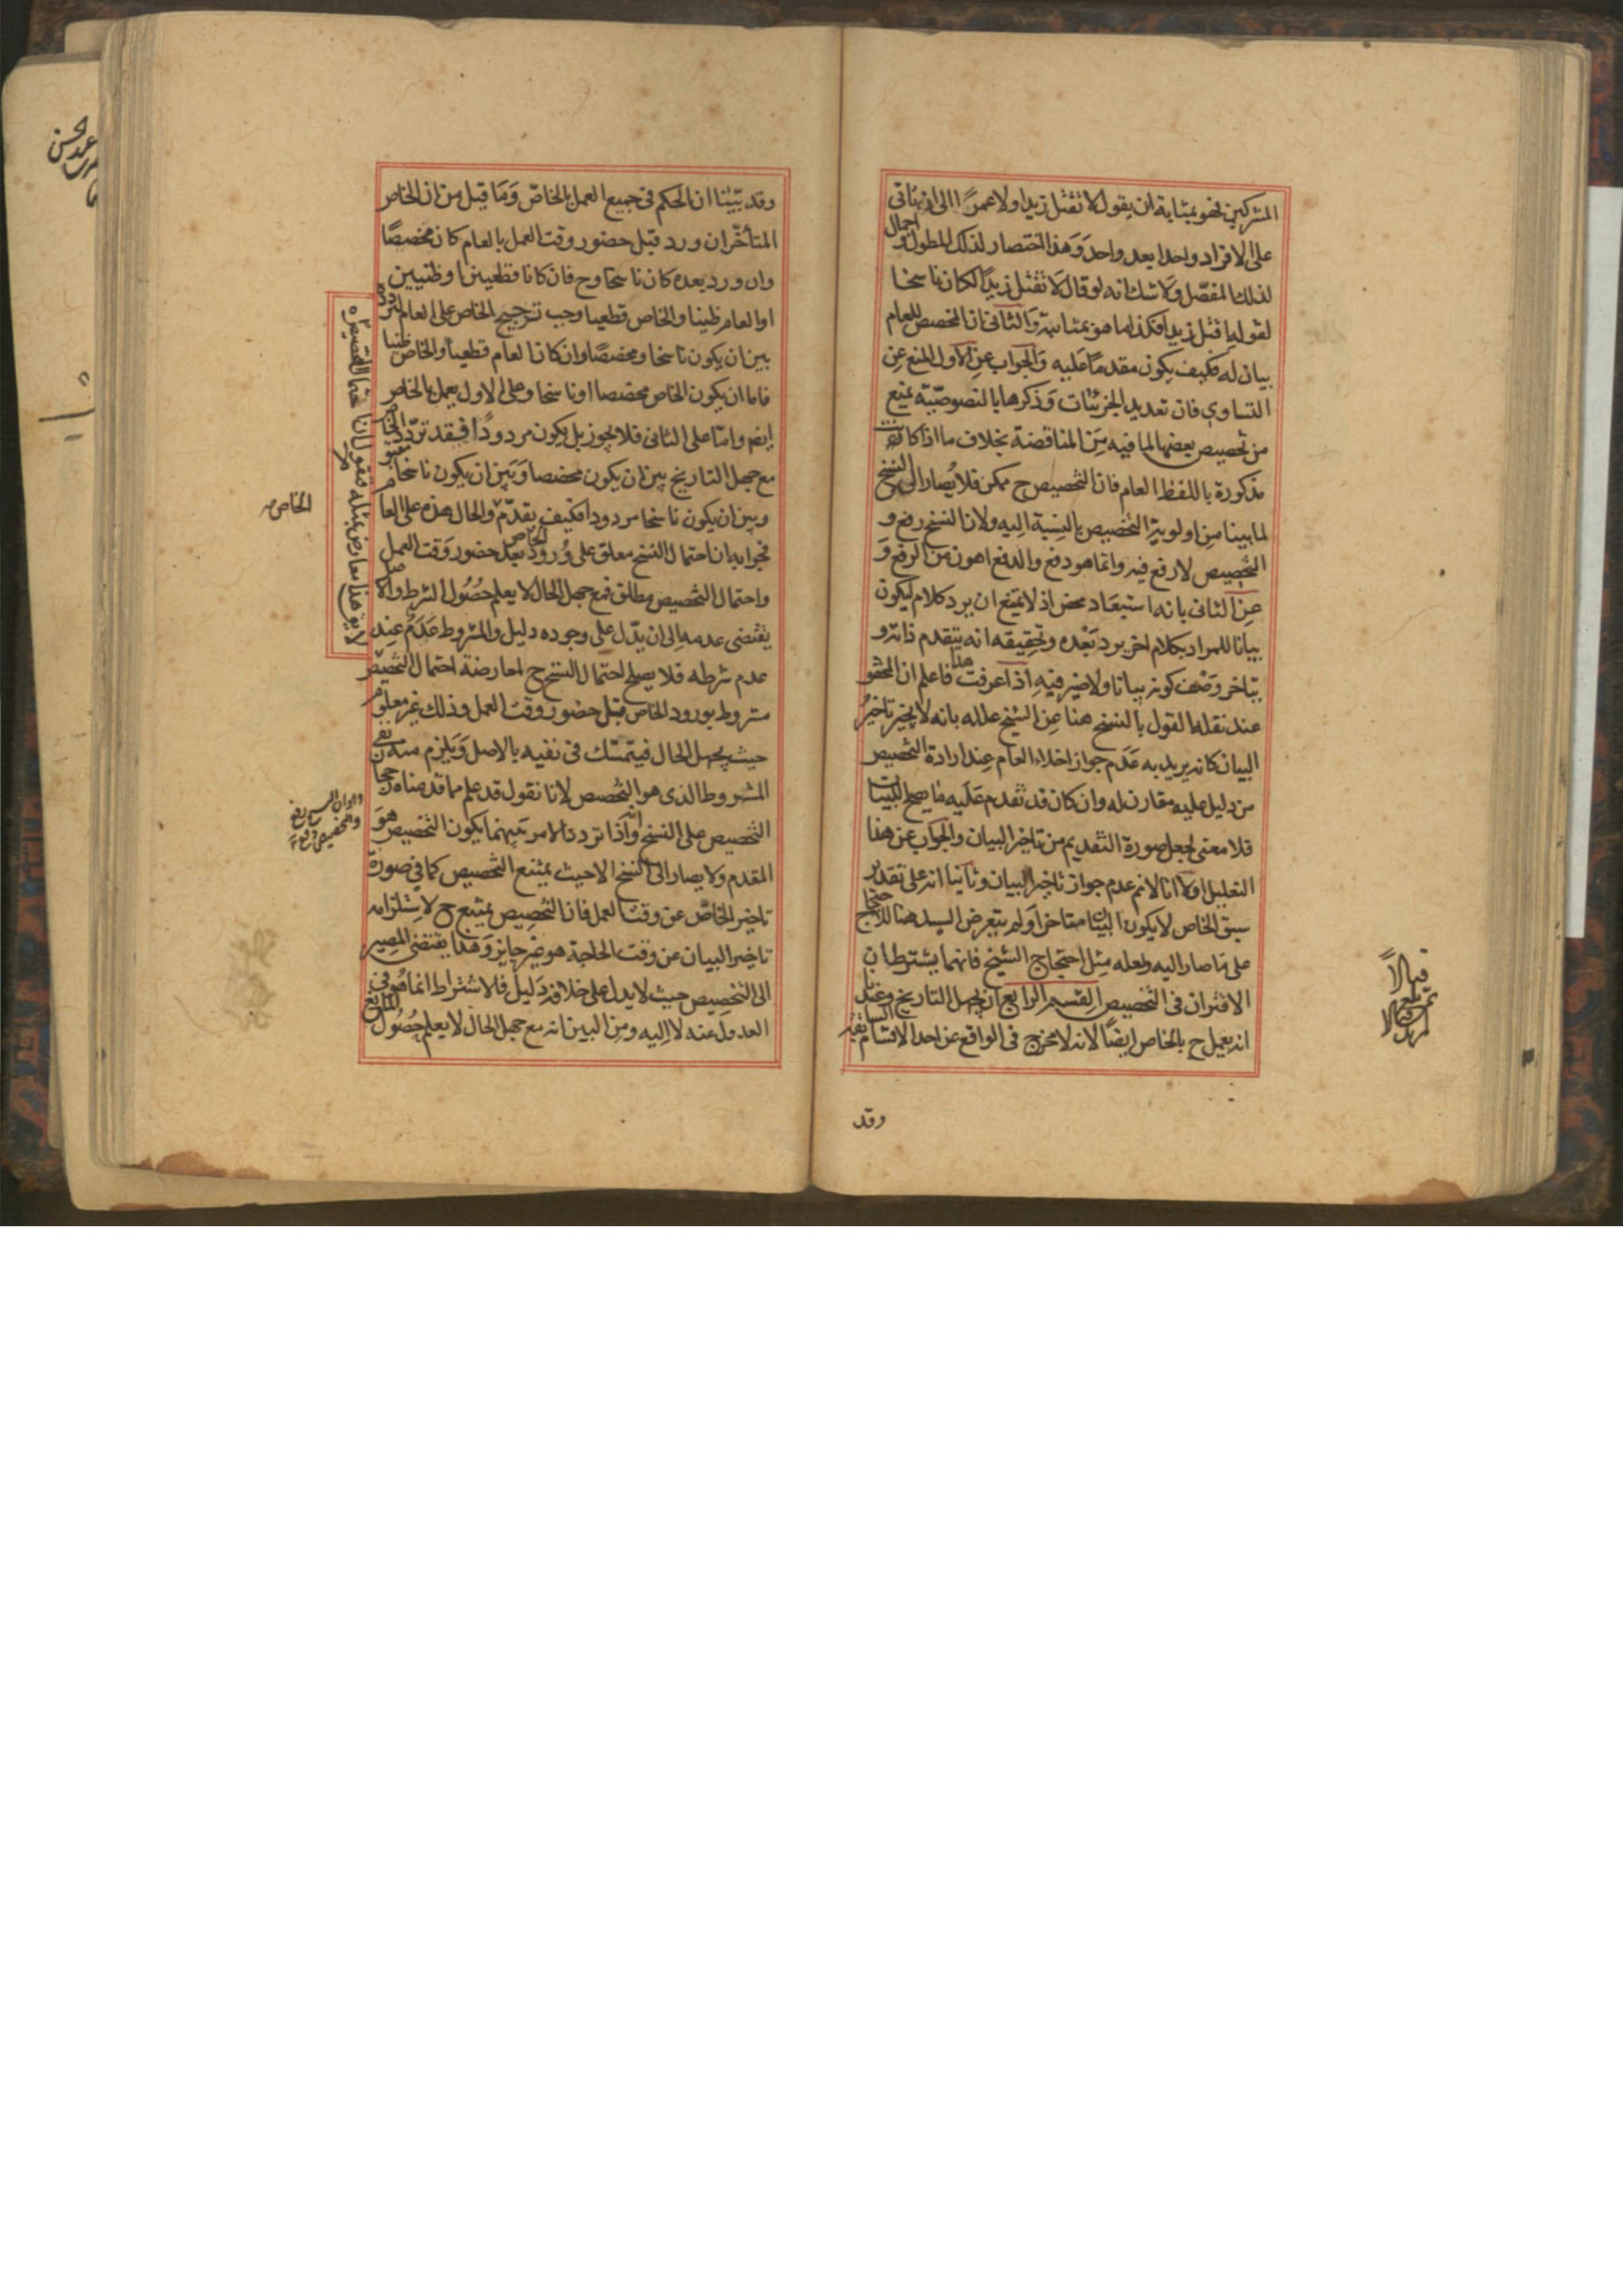 المشركين فهو بمثابة ان يقول لا تقتل زيدا ولا عمرًا الى ان ياتى
على الافراد واحدا بعد واحد وَهذا اختصار لذلك المطول و اجمال
لذلك المفصّل وَلا شك انه لو قال لا تقتل زيدًا لكان ناسخا
لقوله اقتل زيدا فكذا ما هو بمثابته وَالثانى ان المخصص للعام
بيان له فكيف يكون مقدمًا عليه وَالجواب عن الاول المنع عن
التساوى فان تعديد الجزئيات وَذكرها بالنصوصيّة يمنع
من تخصيص بعضها لما فيه مِن المناقضة بخلاف ما اذا كانت
مذكورة باللفظ العام فان التخصيص ح ممكن فلا يُصار الى النسخ
لما بينا مِن اولوية التخصيص بالنسبة اليه ولان النسخ رفع و
التخصيص لا رفع فيه وانما هو دفع والدفع اهون من الرفع وَ
عن الثانى بانه استبعاد محض اذ لا يمتنع ان يرد كلام ليكون
بيانا للمراد بكلام اخر يرد بَعْده وتحقيقه انه يتقدم ذاته و
يتاخر وَصْف كونه بيانا ولا ضير فيهِ اذا عرفت هذا فاعلم ان المحقق
عند نقله القول بالنسخ هنا عن الشيخ علله بانه لا يجيز تاخيرُ
البيان كانه يريد به عَدَم جواز اخلاء العام عند ارادة التخصيص
من دليل عليه مقارن له وان كان قد تقدم عَلَيه ما يصلح للبيان
فلا معنى لجعل صورة التقديم من تاخير البيان والجواب عن هذا
التعليل اولا انا لا نم عدم جواز تاخير البيان وثانيا انه على تقدير
سبق الخاص لا يكون البيان متاخرا وَلم يتعرض السيد هنا للاحتجاج
على مَا صار اليه ولعله مِثل احتجاج الشيخ فانهما يشترطان
الاقتران فى التخصيص القسم الرابع ان يجهل التاريخ وعندنا
انه يعمل ح بالخاص ايضًا لانه لا يخرج فى الواقع عن احد الاقسام السابقة
وقد
وقد بيّنا ان الحكم فى جميع العمل بالخاصّ وَمَا قيل من ان الخاص
المتأخّر ان ورد قبل حضور وقت العمل بالعام كان مخصصًا
وان ورد بعده كان ناسخا وح فان كانا قطعيين او ظنيين
او العام ظنيا والخاص قطعيا وجب ترجيح الخاص على العام لتردده
بين ان يكون ناسخا ومخصصًا وان كان العام قطعياً والخاص ظنيا
فاما ان يكون الخاص مخصصا او ناسخا وعلى الاول يعمل بالخاص
ايضم وامّا على الثانى فلا يجوز بل يكون مردودًا فقد تردّد الخاص
مع جهل التاريخ بين ان يكون مخصصا وَبَين ان يكون ناسخا مقبو
وبين ان يكون ناسخا مردودا فكيف يقدّم وَالحال هذه على العا
فجوابه ان احتمال النسخ معلق على وُرود الخاص بعد حضور وَقت العمل
واحتمال التخصيص مطلق فمع جهل الحال لا يعلم حصُول الشرط والا صل
يقتضى عدمه الى ان يدّل على وجوده دليل والمشروط عَدَم عِند
عدم شرطه فلا يصلح احتمال النسخ ح لمعارضة احتمال التخصيص
مشروط بورود الخاص قبل حضور وقت العمل وذلك غير معلوم
حيث يجهل الحال فيتمسّك فى نفيه بالاصل وَيلزم منه نفى
المشروط الذى هو التخصيص لانا نقول قد علم مما قدمناه
التخصيص على النسخ وانّه اذا تردد الامر بَينهما يكون التخصيص هوَ
المقدم وَلا يصار الى النسخ الا حيث يمتنع التخصيص كما فى صورة
تاخير الخاصّ عن وقت العمل فان التخصيص يمتنع ح لاستلزامه
تاخير البيان عن وقت الحاجة هو غير جايز وَهذا يقتضى المصير
الى التخصيص حيث لا يدل على خلافه دَليل فالاشتراط انما هُو فى
العدول عنه لا اليه ومن البين انه مع جهل الحال لا يعلم حُصُول المانع
لا يق هذا معارض بمثله فنقول ان
الخاص